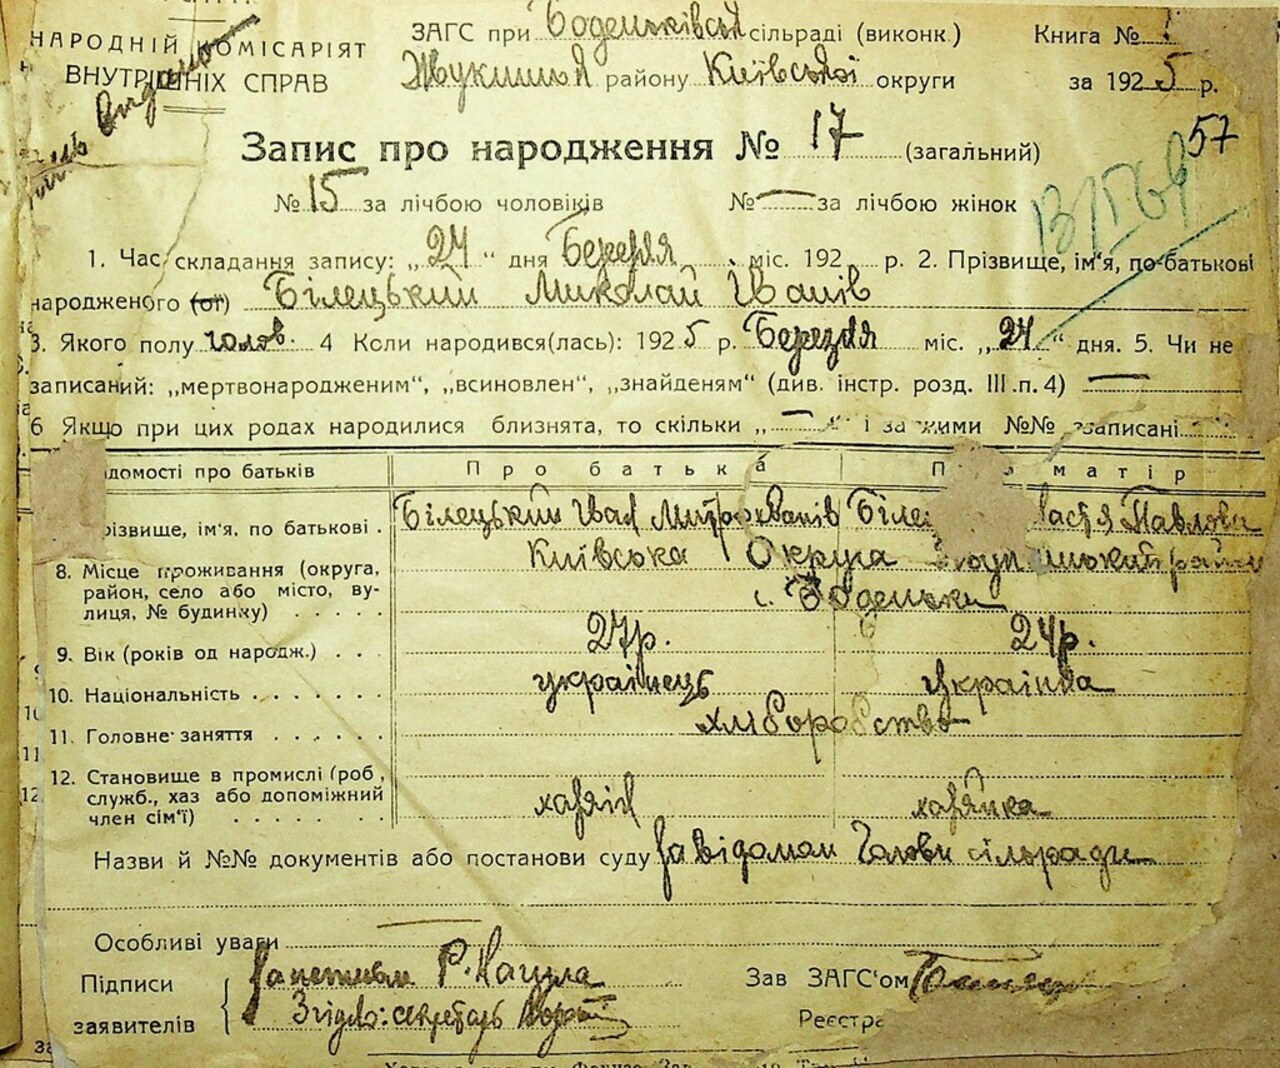 НАРОДНІЙ КОМІСАРІЯТ
ВНУТРІШНІХ СПРАВ
ЗАГС при Боденьківській сільраді (виконк.) Книга №
району Київської округи за 1925 р.
57
Запис про народження № 17 (загальний)
№ 15 за лічбою чоловіків № — за лічбою жінок
1. Час складання запису: „24“ дня Березня міс. 192 р. 2. Прізвище, ім'я, по-батькові
народженого (ої) Білецький Миколай Іванів
3. Якого полу чолов. 4 Коли народився(лась): 1925 р. Березня міс. „24“ дня. 5. Чи не
записаний: „мертвонародженим“, „всиновлен“, „знайденям“ (див. інстр. розд. III п. 4) —
6 Якщо при цих родах народилися близнята, то скільки „—“ і за якими №№ записані
домості про батьків Про батька Про матір
різвище, ім'я, по батькові . Білецький Іван Митрофанів Біле Павлова
8. Місце проживання (округа, район, село або місто, вулиця, № будинку) . . . . . Київська Округа
с. Боденьки
9. Вік (років од народж.) . . . 27р. 24р.
10. Національність . . . . . . . українець українка
11. Головне заняття . . . . . . хліборобство
12. Становище в промислі (роб., служб., хаз або допоміжний член сім'ї) . . . . . . . хазяїн хазяйка
Назви й №№ документів або постанови суду За відомом Голови сільради
Особливі уваги
Підписи
заявителів
Згідно: секретарь
Зав ЗАГС'ом
Реєстра